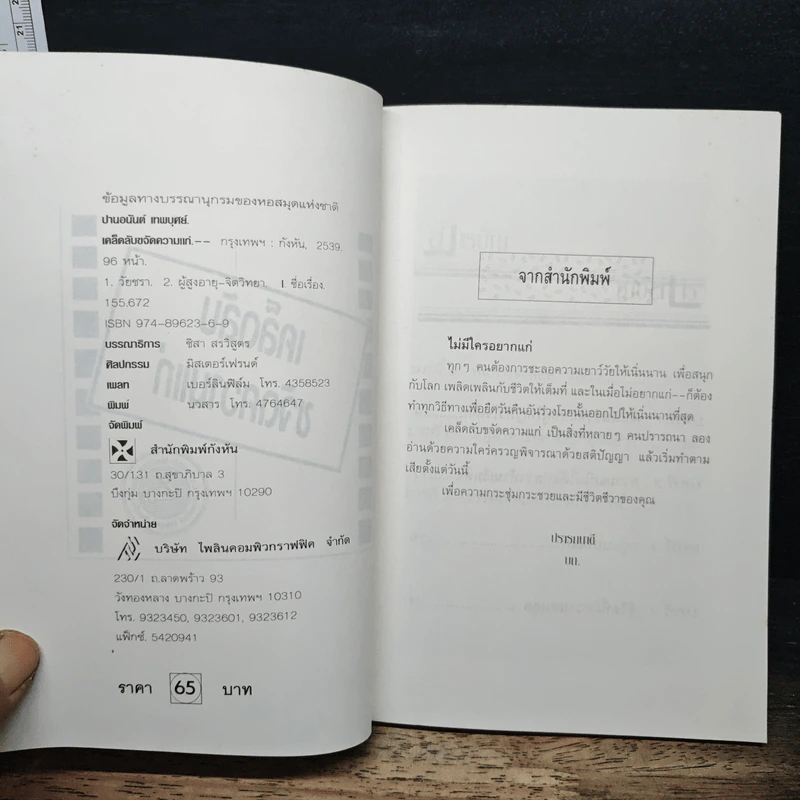 ข้อมูลทางบรรณานุกรมของหอสมุดแห่งชาติ
ปานอนันต์ เทพบุศย์.
เคล็ดลับขจัดความแก่.-- กรุงเทพฯ : กังหัน, 2539.
96 หน้า.
1. วัยชรา. 2. ผู้สูงอายุ-จิตวิทยา. I ชื่อเรื่อง.
155.672
ISBN 974-89623-6-9
บรรณาธิการ ชิสา สรวิสูตร
ศิลปกรรม มิสเตอร์เฟรนด์
เพลท เบอร์ลินฟิล์ม โทร. 4358523
พิมพ์ นวสาร โทร. 4764647
จัดพิมพ์
สำนักพิมพ์กังหัน
30/131 ถ.สุขาภิบาล 3
บึงกุ่ม บางกะปิ กรุงเทพฯ 10290
จัดจำหน่าย
บริษัท ไพลินคอมพิวกราฟฟิค จำกัด
230/1 ถ.ลาดพร้าว 93
วังทองหลาง บางกะปิ กรุงเทพฯ 10310
โทร. 9323450, 9323601, 9323612
แฟ็กซ์. 5420941
ราคา 65 บาท
จากสำนักพิมพ์
ไม่มีใครอยากแก่
ทุกๆ คนต้องการชะลอความเยาว์วัยให้เนิ่นนาน เพื่อสนุก
กับโลก เพลิดเพลินกับชีวิตให้เต็มที่ และในเมื่อไม่อยากแก่--ก็ต้อง
ทำทุกวิถีทางเพื่อยืดวันคืนอันร่วงโรยนั้นออกไปให้เนิ่นนานที่สุด
เคล็ดลับขจัดความแก่ เป็นสิ่งที่หลายๆ คนปรารถนา ลอง
อ่านด้วยความใคร่ครวญพิจารณาด้วยสติปัญญา แล้วเริ่มทำตาม
เสียตั้งแต่วันนี้
เพื่อความกระชุ่มกระชวยและมีชีวิตชีวาของคุณ
ปรารถนาดี
บก.